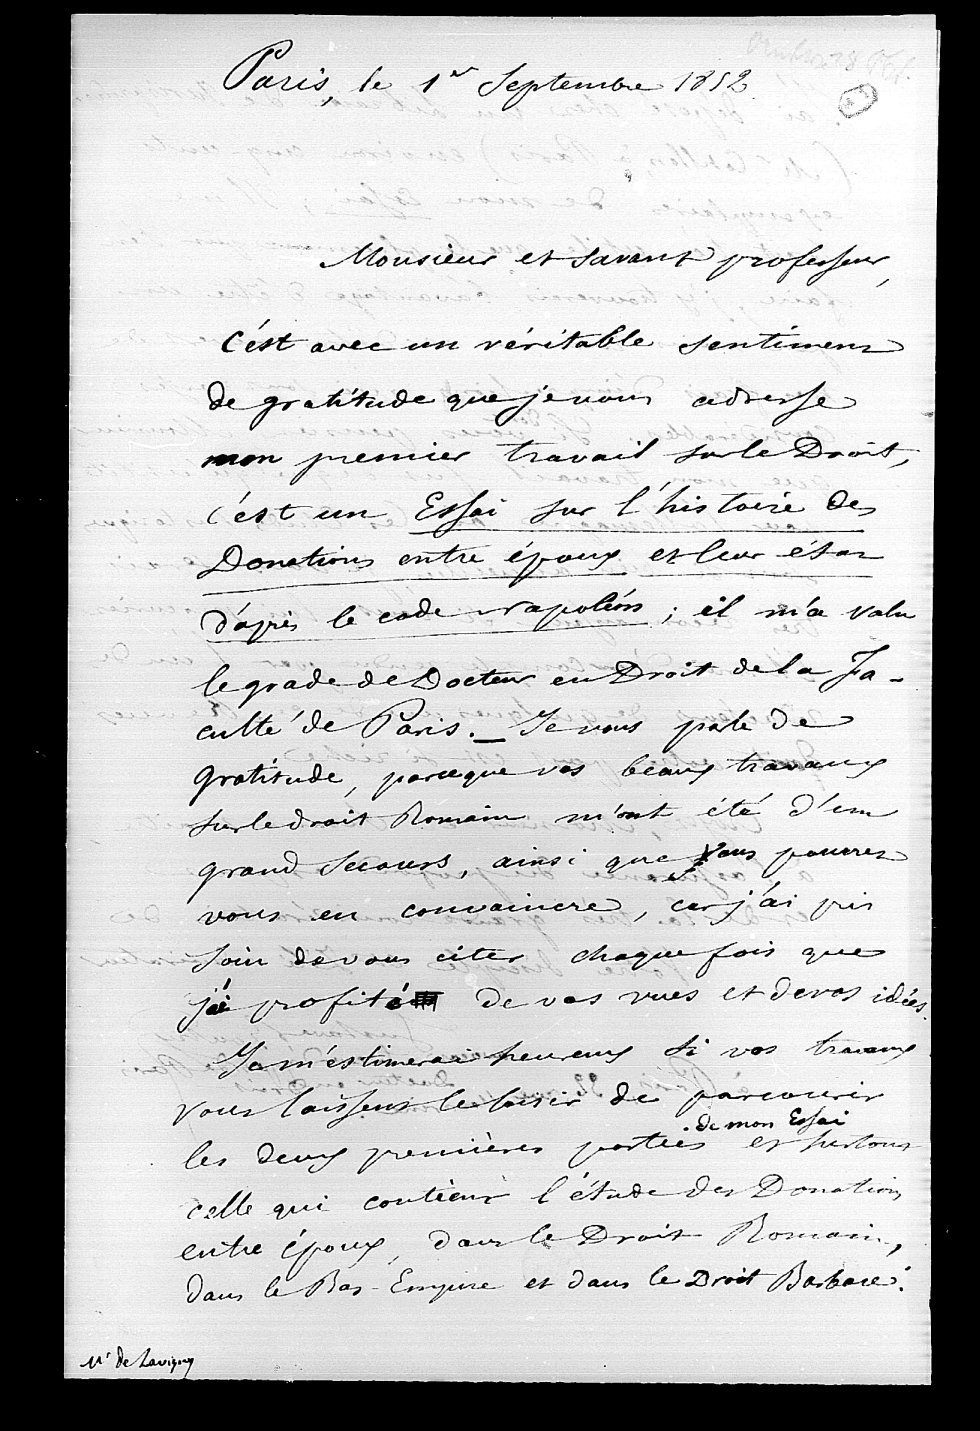 Paris, le 1er Septembre 1852
Monsieur et Savant professeur,
C'est avec un véritable sentiment
de gratitude que je vous adresse
mon premier travail sur le Droit,
c'est un Essai sur l'histoire des
Donations entre époux et leur état
d'après le code Napoléon ; il m'a valu
le grade de Docteur en Droit de la Fa-
culté de Paris. — Je vous parle de
gratitude, parceque vos beaux travaux
sur le droit Romain m'ont été d'un
grand secours, ainsi que vous pourrez
vous en convaincre, car j'ai pris
soin de vous citer chaque fois que
j'ai profité de vos vues et de vos idées.
Je m'estimerai heureux si vos travaux
vous laissent le loisir de parcourir
les deux premières parties de mon Essai et surtout
celle qui contient l'étude des Donations
entre époux, dans le Droit Romain,
dans le Bas-Empire et dans le Droit Barbare.
Mr de Savigny